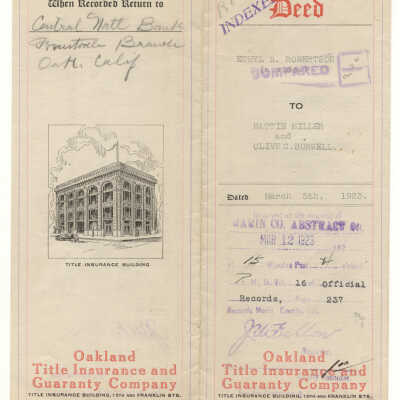 When Recorded Return to
Central Natl Bank
Fruitvale Branch
Oak. Calif
TITLE INSURANCE BUILDING
Oakland
Title Insurance and
Guaranty Company
TITLE INSURANCE BUILDING, 15TH AND FRANKLIN STS.
INDEXED
Deed
ETHYL R. ROBERTSON
COMPARED
TO
MATTIE MILLER
and
OLIVE C. BURWELL.
Dated March 5th, 1923.
MARIN CO. ABSTRACT CO.
MAR 12 1923
15 Minutes Past
16 Official
Records, Page 237
Records, Marin County, Cal.
Oakland
Title Insurance and
Guaranty Company
TITLE INSURANCE BUILDING, 15TH AND FRANKLIN STS.